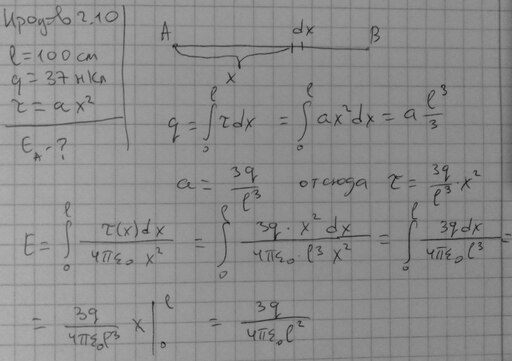 Иродов 2.10
l = 100 см
q = 37 нКл
τ = a x²
E_A - ?
A dx B
x
q = ∫₀ˡ τ dx = ∫₀ˡ ax² dx = a l³/3
a = 3q/l³ отсюда τ = 3q/l³ · x²
E = ∫₀ˡ τ(x)dx/(4πε₀ x²) = ∫₀ˡ 3q · x² dx/(4πε₀ · l³ x²) = ∫₀ˡ 3q dx/(4πε₀ l³) =
= 3q/(4πε₀l³) x |₀ˡ = 3q/(4πε₀l²)